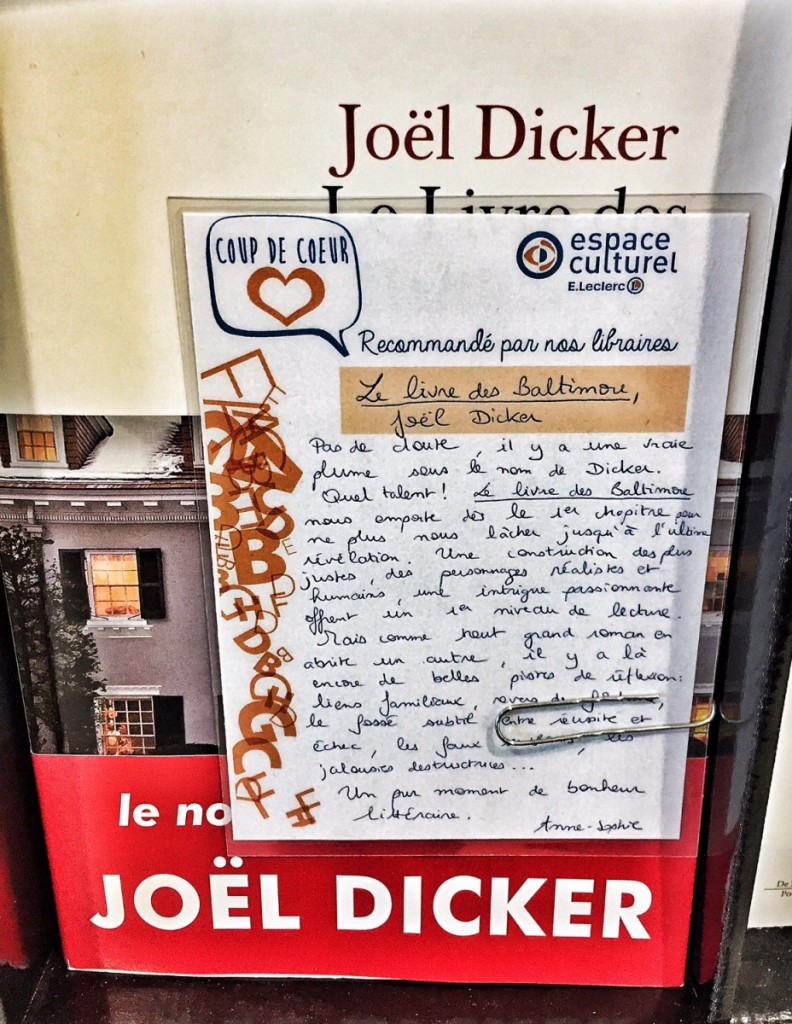 Joël Dicker
Le Livre des
COUP DE COEUR
espace
culturel
E.Leclerc L
Recommandé par nos libraires
Le livre des Baltimore,
Joël Dicker
Pas de doute, il y a une vraie
plume sous le nom de Dicker.
Quel talent! Le livre des Baltimore
nous emporte dès le 1er chapitre pour
ne plus nous lâcher jusqu'à l'ultime
révélation. Une construction des plus
justes, des personnages réalistes et
humains, une intrigue passionnante
offrent un 1er niveau de lecture.
Mais comme tout grand roman en
abrite un autre, il y a là
encore de belles pistes de réflexion:
liens familiaux,
le fossé subtil entre réussite et
échec, les faux les
jalousies destructrices...
Un pur moment de bonheur
littéraire.
Anne-Sophie
le no
JOËL DICKER
De
Po